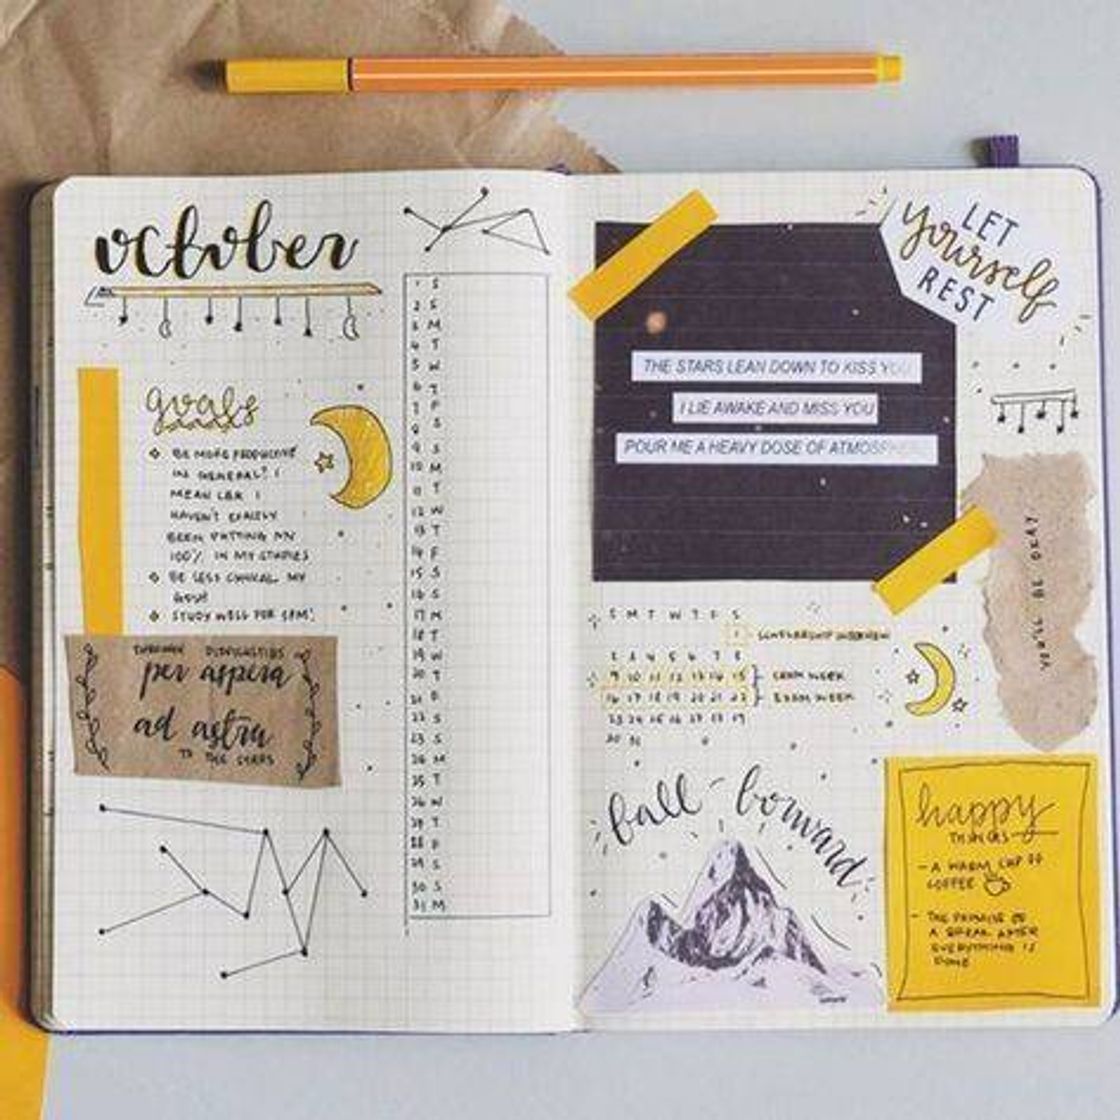 october
goals
BE MORE PRODUCTIVE
IN GENERAL? I
MEAN LBR I
HAVEN'T EXACTLY
BEEN PUTTING MY
100% IN MY STUDIES
BE LESS CYNICAL MY
GOSH
STUDY WELL FOR
THROUGH DIFFICULTIES
per aspera
ad astra
TO THE STARS
1 S
2 S
3 M
4 T
5 W
6 T
7 F
8 S
9 S
10 M
11 T
12 W
13 T
14 F
15 S
16 S
17 M
18 T
19 W
20 T
21 F
22 S
23 S
24 M
25 T
26 W
27 T
28 F
29 S
30 S
31 M
LET
yourself
REST
THE STARS LEAN DOWN TO KISS YOU
I LIE AWAKE AND MISS YOU
POUR ME A HEAVY DOSE OF ATMOSPHERE
YOU'LL BE OKAY
S M T W T F S
1 SCHOLARSHIP INTERVIEW
2 3 4 5 6 7 8
9 10 11 12 13 14 15 CRAM WEEK
16 17 18 19 20 21 22 EXAM WEEK
23 24 25 26 27 28 29
30 31
fall forward
happy
THINGS
- A WARM CUP OF
COFFEE
- THE PROMISE OF
A BREAK AFTER
EVERYTHING IS
DONE